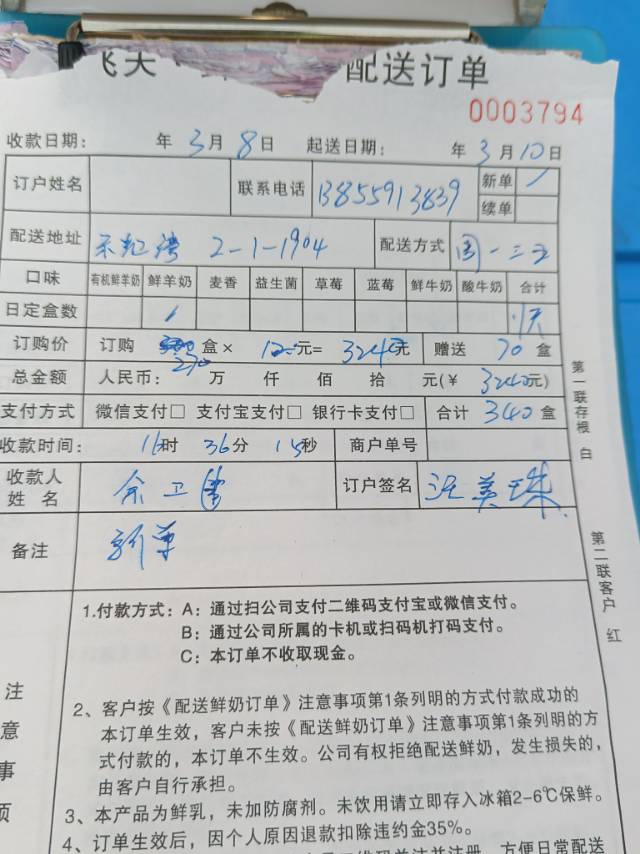 飞天 配送订单
0003794
收款日期： 年 3 月 8 日 起送日期： 年 3 月 10 日
订户姓名 联系电话 13855913839 新单 /
续单
配送地址 2-1-1904 配送方式 周一三五
口味 有机鲜羊奶 鲜羊奶 麦香 益生菌 草莓 蓝莓 鲜牛奶 酸牛奶 合计
日定盒数 1 1/天
订购价 订购 270 盒× 12 元= 3240元 赠送 70 盒
总金额 人民币： 万 仟 佰 拾 元(￥ 3240元)
支付方式 微信支付□ 支付宝支付□ 银行卡支付□ 合计 340 盒
收款时间： 16时 36分 15秒 商户单号
收款人姓名 余卫 订户签名 汪英珠
备注 新单
第一联存根 白
第二联客户 红
注意事项
1.付款方式：A：通过扫公司支付二维码支付宝或微信支付。
B：通过公司所属的卡机或扫码机打码支付。
C：本订单不收取现金。
2、客户按《配送鲜奶订单》注意事项第1条列明的方式付款成功的
本订单生效，客户未按《配送鲜奶订单》注意事项第1条列明的方
式付款的，本订单不生效。公司有权拒绝配送鲜奶，发生损失的，
由客户自行承担。
3、本产品为鲜乳，未加防腐剂。未饮用请立即存入冰箱2-6℃保鲜。
4、订单生效后，因个人原因退款扣除违约金35%。
方便日常配送